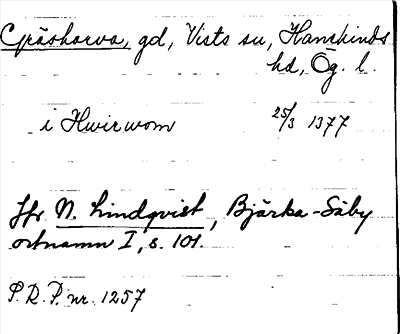 Gräsharva, gd, Vists sn, Hanekinds
hd, Ög. l.
i Hwirwom 25/3 1377
Jfr N. Lindqvist, Bjärka-Säby
ortnamn I, s. 101.
P. R. P. nr. 1257